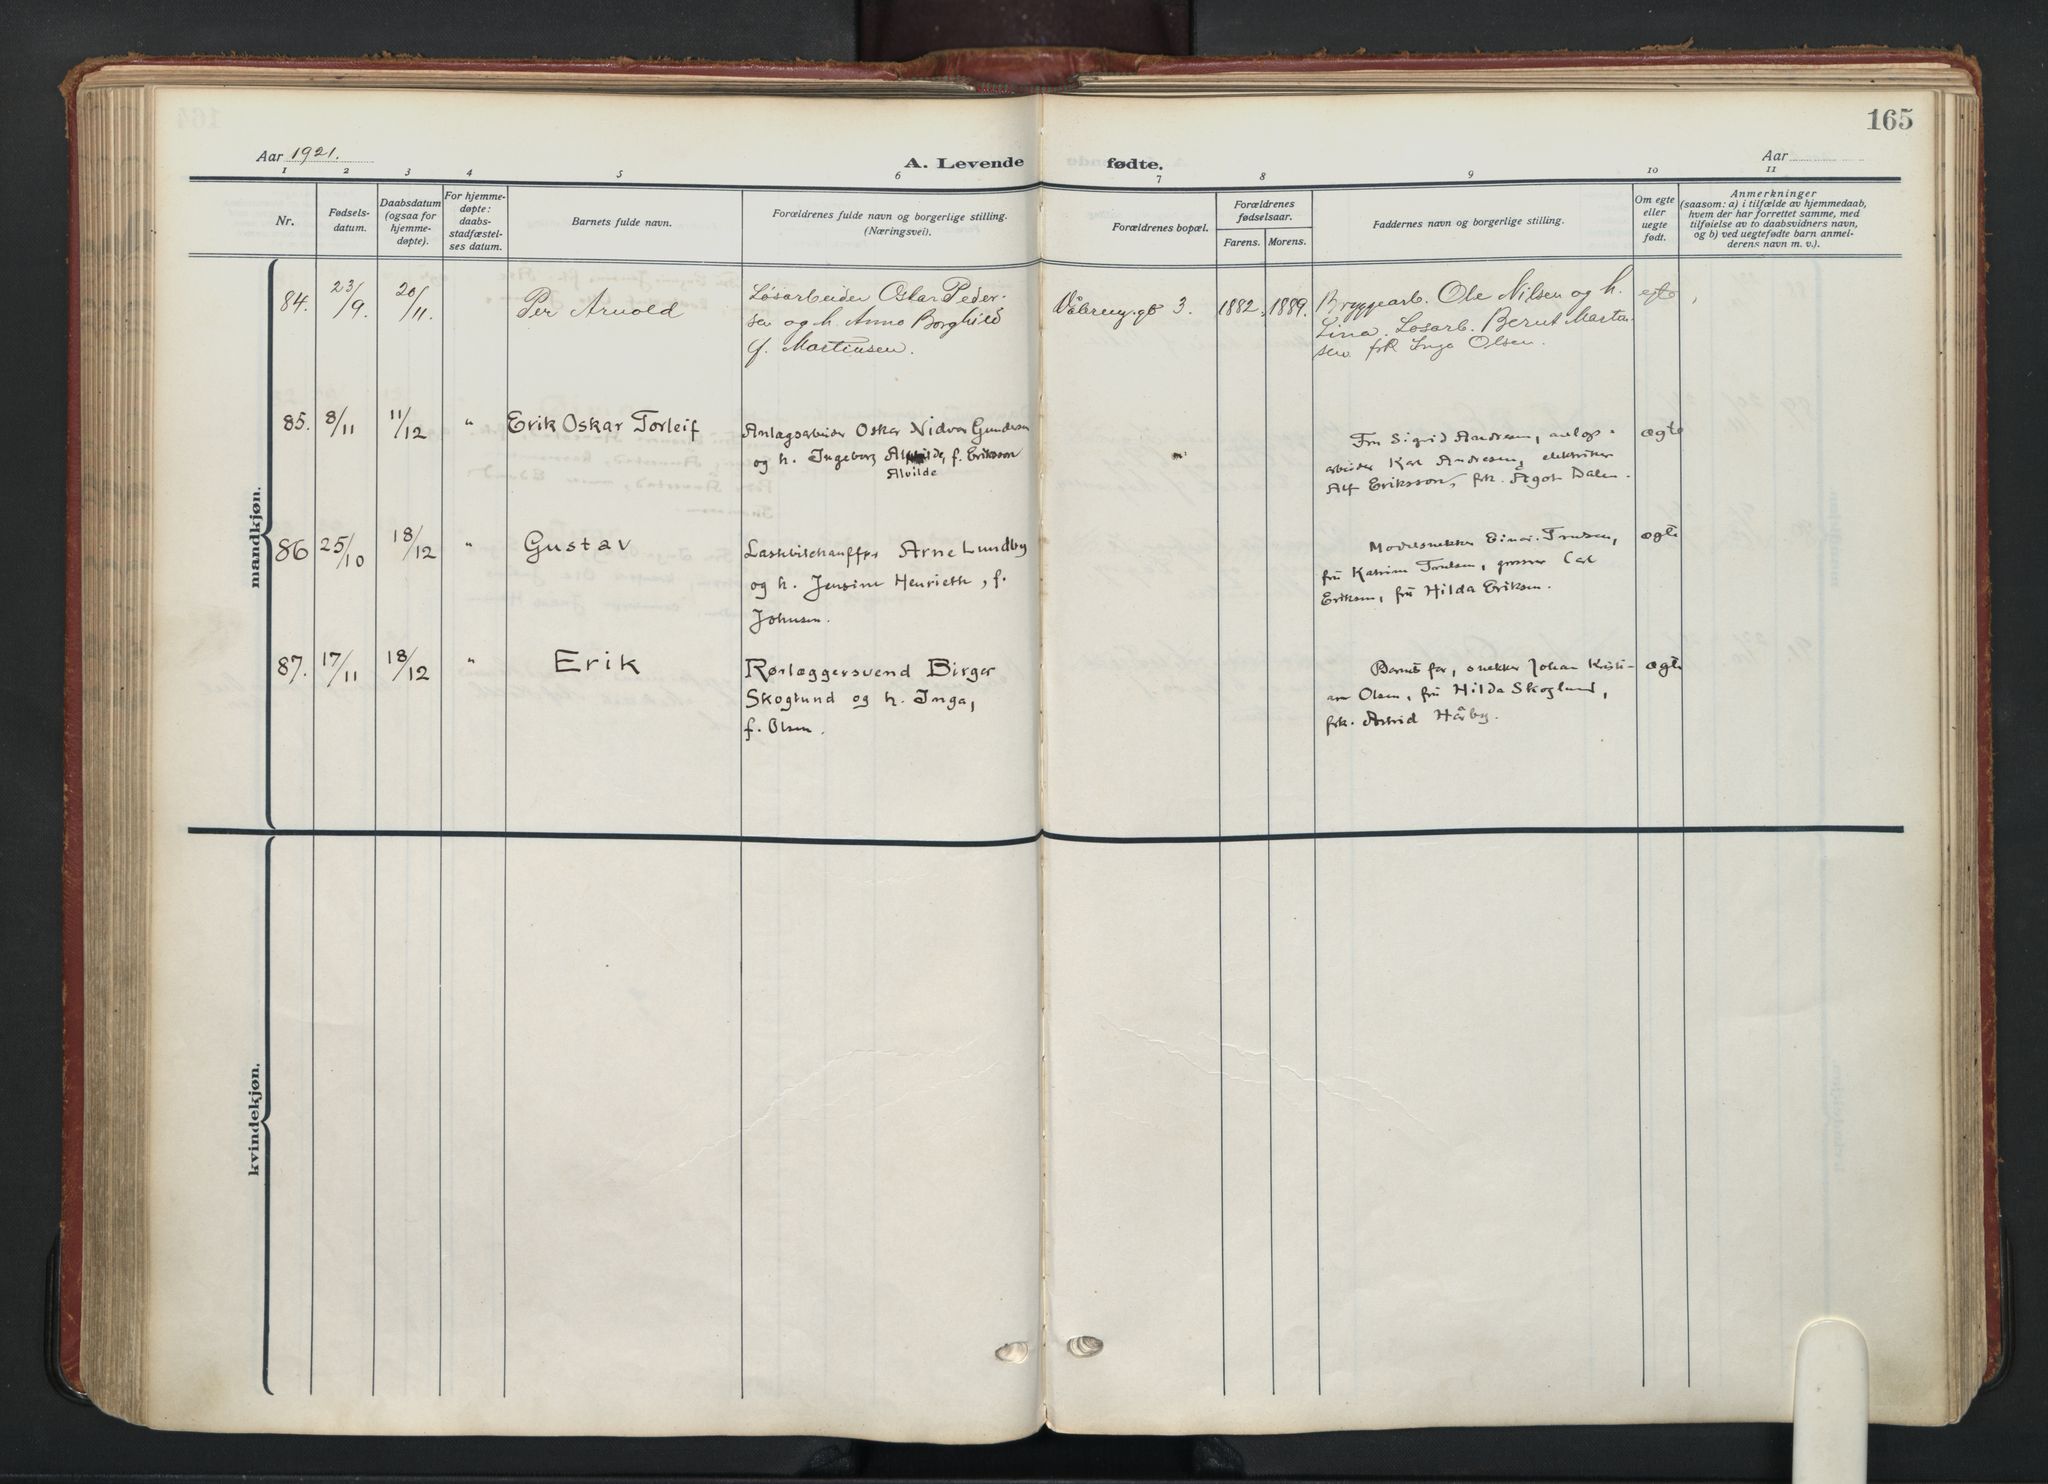 165
Aar 1921.
A. Levende
fødte.
Aar
1 2 3 4 5 6 7 8 9 10 11
Nr.
Fødsels-
datum.
Daabsdatum
(ogsaa for
hjemme-
døpte).
For hjemme-
døpte:
daabs-
stadfæstel-
ses datum.
Barnets fulde navn.
Forældrenes fulde navn og borgerlige stilling.
(Næringsvei).
Forældrenes bopæl.
Forældrenes
fødselsaar.
Farens. Morens.
Faddernes navn og borgerlige stilling.
Om egte
eller
uegte
født.
Anmerkninger
(saasom: a) i tilfælde av hjemmedaab,
hvem der har forrettet samme, med
tilføielse av to daabsvidners navn,
og b) ved uegtefødte barn anmel-
derens navn m. v.).
mandkjøn.
84.
23/9.
20/11.
Per Arnold
Løsarbeider Oskar Peder-
sen og h. Anna Borghild
f. Martinsen.
Vålereng.gt 3.
1882.
1889.
Bryggearb. Ole Nilsen og h.
Lina. Løsarb. Bernt Martin-
sen frk Inga Olsen.
egte
85.
8/11
11/12
"
Erik Oskar Torleif
Anlægsarbeider Oskar Nidvar Gundersen
og h. Ingeborg Alvilde, f. Eriksson
Alvilde
Fru Sigrid Andresen, anlægs-
arbeider Karl Andresen, elektriker
Alf Eriksson, frk. Ågot Dalen.
ægte
86
25/10
18/12
"
Gustav
Lastbilchauffør Arne Lundby
og h. Jensine Henriette, f.
Johnsen.
Modelsnekker Einar Trulsen,
fru Katrine Trulsen, grosser Carl
Eriksen, fru Hilda Eriksen.
ægte
87.
17/11
18/12
"
Erik
Rørlæggersvend Birger
Skoglund og h. Inga,
f. Olsen.
Barnets far, snekker Johan Kristi-
an Olsen, fru Hilda Skoglund,
frk. Astrid Hårby.
ægte
kvindekjøn.